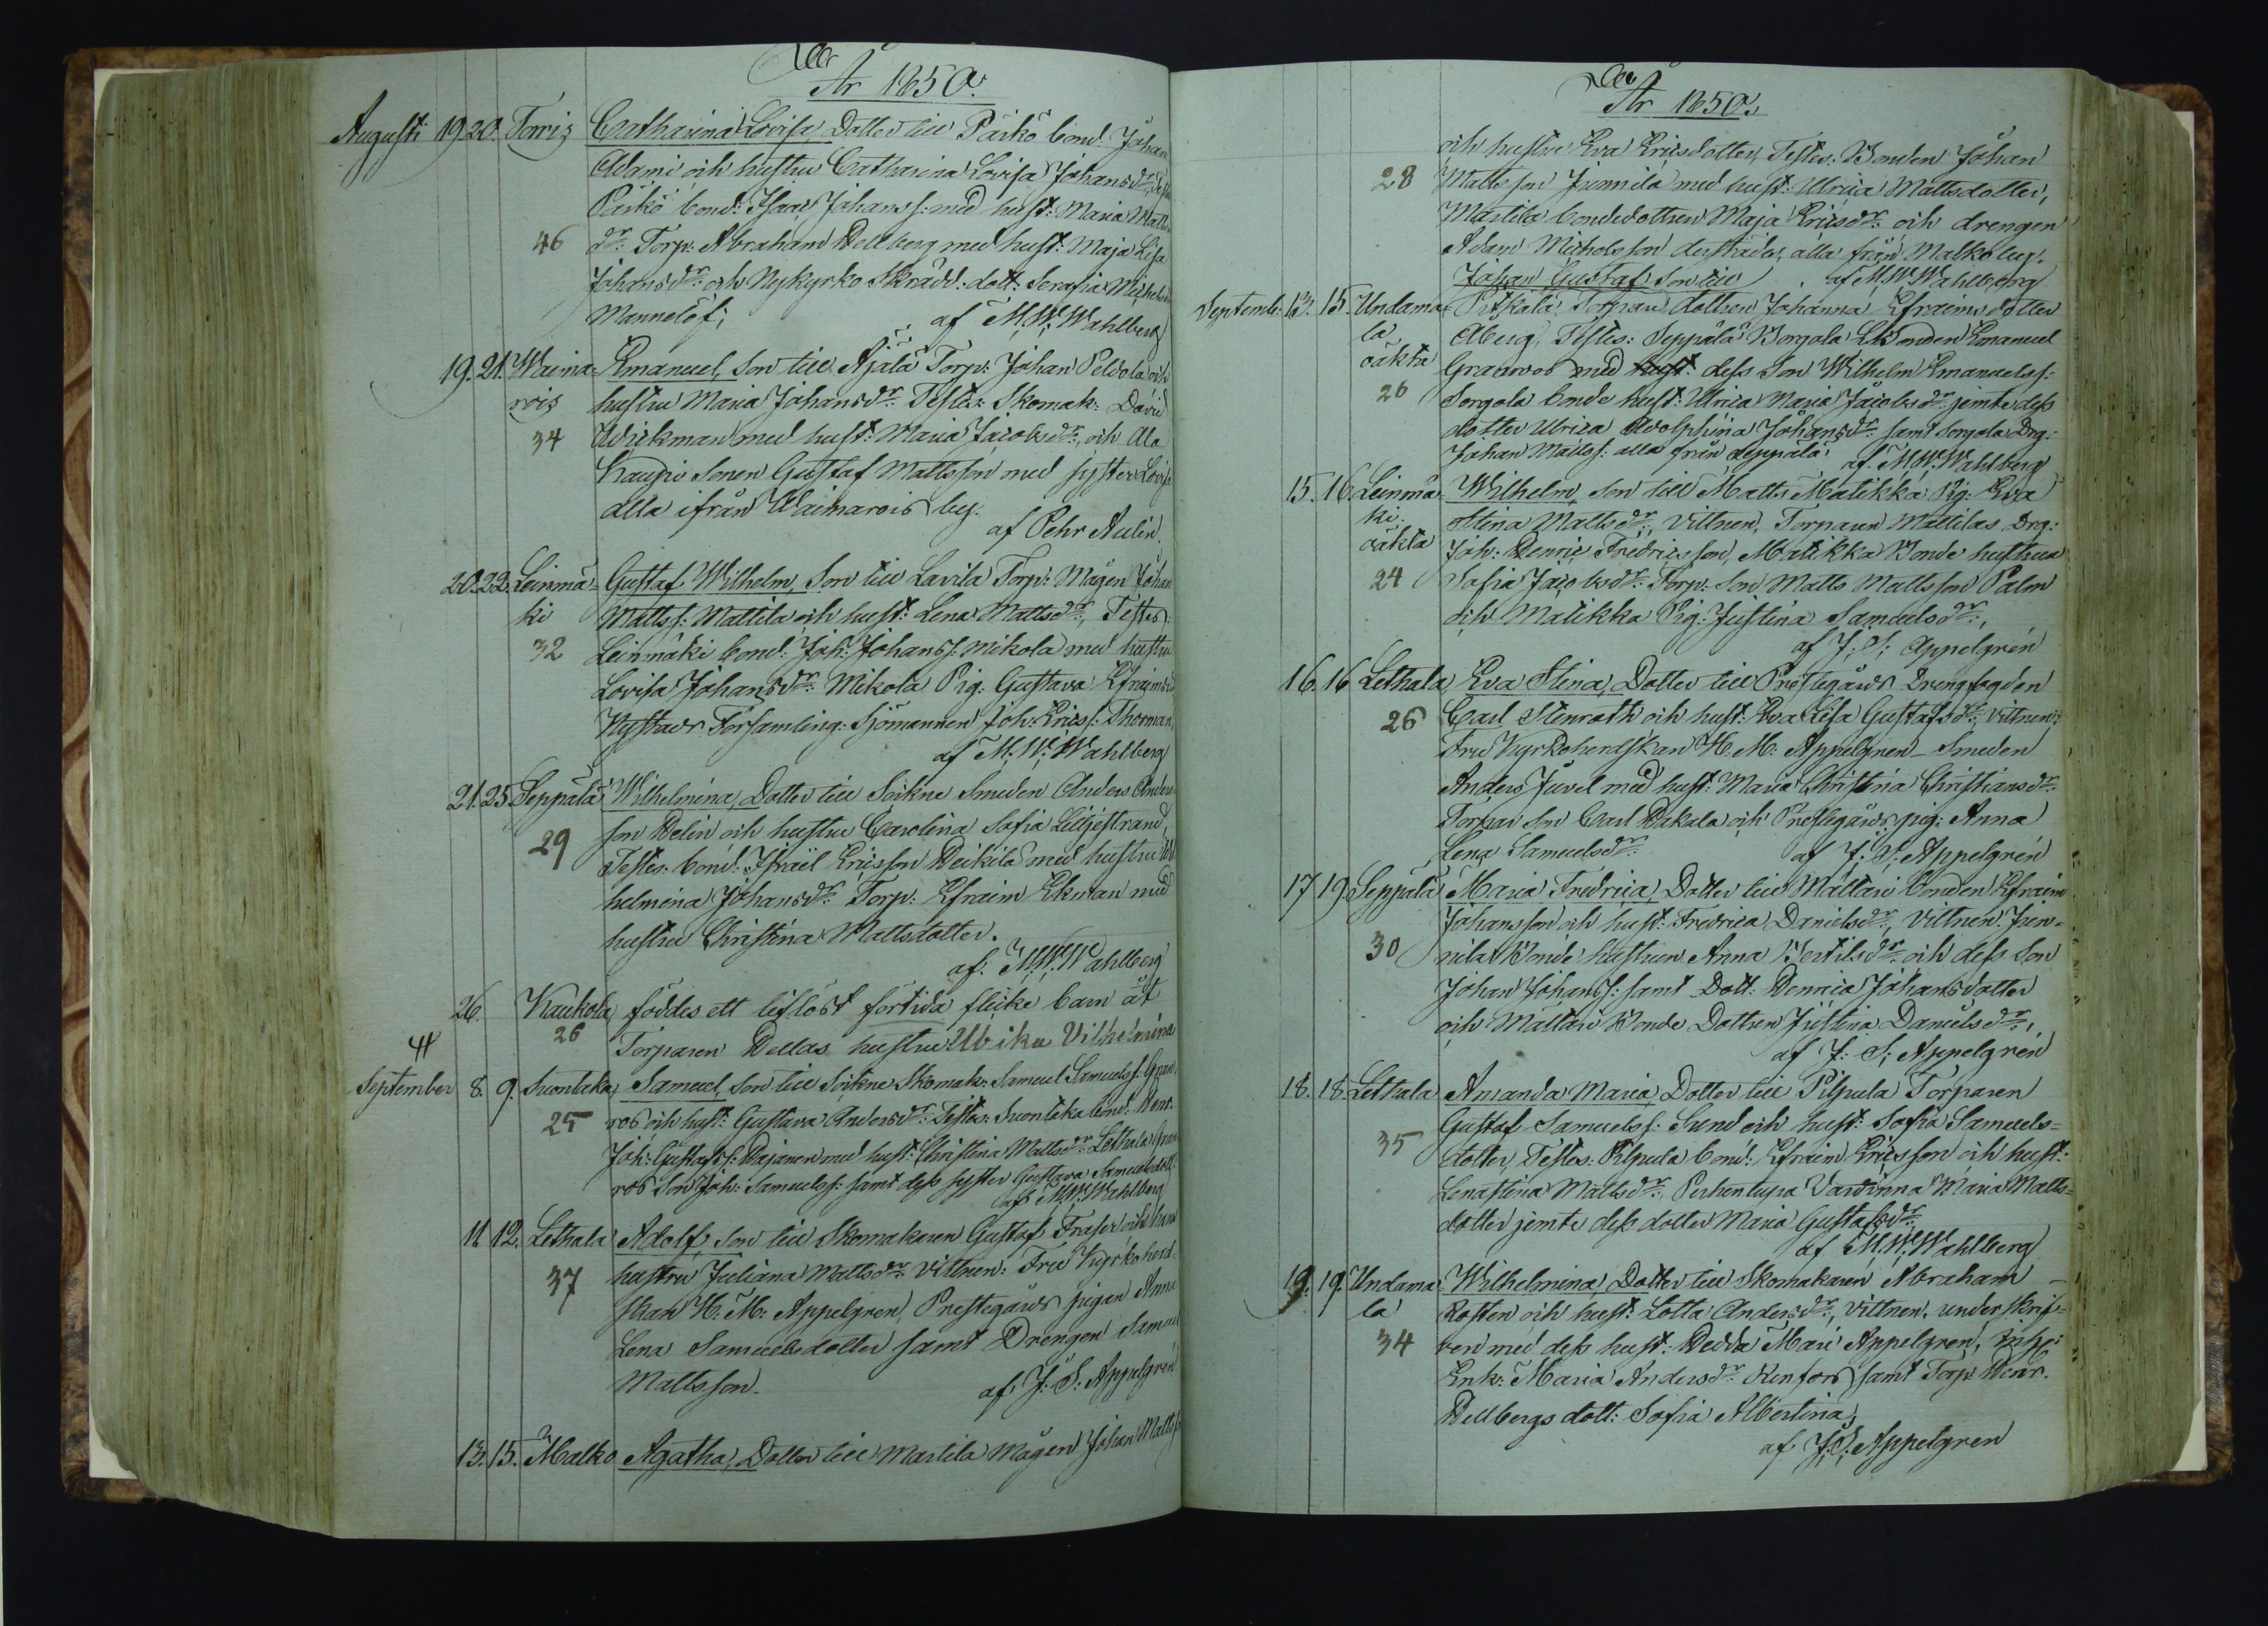 År 1850.
Augusti 19. 20. Torris Catharina Lovisa, Dotter till Pärkö bond: Johan
Adami och hustru Catharina Lovisa Johansdr:
Pärkö bond: Isaac Johanss: med hust: Maria Matts
46 dr: Torp: Abraham Dellberg med hust: Maja Lisa
Johansdr: och Nykyrko Skrädd: dott: Serafia Michels
Mannelöf; af M. W. Wahlberg
19. 21. Waima- Emanuel, Son till Äjälä Torp: Johan Peldola och
rois hustru Maria Johansdr: Testes: Skomak: David
34 Wickman med hust: Maria Jacobsdr:, och Ala
Kaupi Sonen Gustaf Mattsson med syster Lovisa
alla ifrån Waimarois by.
af Pehr Aulin.
20. 22. Leinmä- Gustaf Wilhelm, Son till Lavila Torp: Mågen Johan
ki Mattss: Mattila och hust: Lena Mattsdr:, Testes:
32 Leinmäki bond: Joh: Johanss: Mikola med hustru
Lovisa Johansdr: Mikola Pig: Gustava Efraimsd
Nystads Församling: Sjömannen Joh: Ericss: Thorman,
af M. W. Wahlberg
21. 25. Seppälä Wilhelmina, Dotter till Sockne Smeden Anders Anders
son Delin och hustru Carolina Sofia Liljestrand,
29 Testes: bond: Israël Ericsson Heikilä med hustru Wil
helmina Johansdr: Torp: Efraim Ekman med
hustru Christina Mattsdotter.
af: M. W. Wahlberg
26. Kaukola föddes ett liflöst förtida flicke barn åt
26 Torparen Dellas hustru Ulrika Vilhelmina
September 8. 9. Suontaka Samuel, Son till Sockne Skomak: Samuel Samuelss: Gran
25 ros och hust: Gustava Andersdr: Testes: Suontaka bond: Henr.
Joh: Gustafss: Dajanen med hust: Christina Mattsdr: Lethala Gran
ros Son Joh: Samuelss: samt dess syster Gustava Samuelsdott:
af: M. W. Wahlberg
11. 12. Lethala Adolf, Son till Skomakaren Gustaf Fraser, och hans
37 hustru Juliana Mattsdr: Vittnen: Fru Kyrkoherd-
skan H: M: Appelgren, Prestegårds pigan Anna
Lena Samuelsdotter samt Drengen Samuel
Mattsson. af: J: S: Appelgrén
13. 15. Malko Agatha, Dotter till Martila Mågen Johan Mattss
År 1850.
och hustru Eva Ericsdotter, Testes: Bonden Johan
28 Mattsson Junnila med hust: Ulrica Mattsdotter,
Martila bondedottren Maja Ericsdr: och drengen
Adam Michelsson derstädes, alla från Malko by.
Johan Gustaf Son till af M. W. Wahlberg
September 13. 15. Undama- Pitkälä Torpare dottren Johanna Efraims dotter
la Åberg, Testes: Seppälä Borgola LBonden Emanuel
oäkta Granroos med hust: dess Son Wilhelm Emanuelss:
26 Sorgola bonde hust: Ulrica Maria Jacobsdr: jemte dess
dotter Ulrica Adolphina Johansdr: samt Sorgola Drg:
Johan Mattss: alla från Seppälä. af: M. W. Wahlberg
15. 16. Leinmä- Wilhelm, Son till Matts Matikka Pig: Eva
ki. Stina Mattsdr:, Vittnen, Torparen Mattilas Drg:
oäkta Joh: Henric Fredricsson, Matikka Bonde hustrun
24 Sofia Jacobsdr: Torp: Son Matts Mattsson Palm
och Matikka Pig: Justina Samuelsdr:,
af J: S: Appelgrén
16. 16. Lethala Eva Stina, Dotter till Prestegårds Drengfogden
26 Carl Stenroth och hust: Eva Lisa Gustafsdr:, Vittnen,
Fru Kyrkoherdskan H: M: Appelgren - Smeden
Anders Juvel med hust: Maria Christina Christiansdr:
Torpar Son Carl Dakala och Prestegårds pig: Anna
Lena Samuelsdr: af J: S: Appelgrén
17. 19. Seppälä Maria Fredrica, Dotter till Mältäri bonden Efraim
Johansson och hust: Fredrica Danielsdr:, Vittnen: Jun-
30 nila Bonde hustrun Anna Bertilsdr: och dess Son
Johan Johanss: samt Dott: Henrica Johansdotter
och Mältäri Bonde Dottren Justina Danielsdr:,
af J: S: Appelgrén
18. 18. Lethala Amanda Maria, Dotter till Pilpula Torparen
Gustaf Samuelss: Sund och hust: Sofia Samuels-
35 dotter, Testes: Pilpula bond: Efraim Ericsson och hust:
Lenastina Mattsdr:, Perhentupa Värdinna Maria Matts-
dotter jemte dess dotter Maria Gustafsdr:
af M. W. Wahlberg
19. 19. Undama- Wilhelmina, Dotter till Skomakaren Abraham
la Rosten och hust: Lotta Andersdr:, Vittnen, underskrif-
34 ven med dess hust: Hedda Mari Appelgren,
Enk: Maria Andersdr: Renfors samt Torp: Henr.
Dellbergs dott: Sofia Albertina,
af J: S: Appelgren